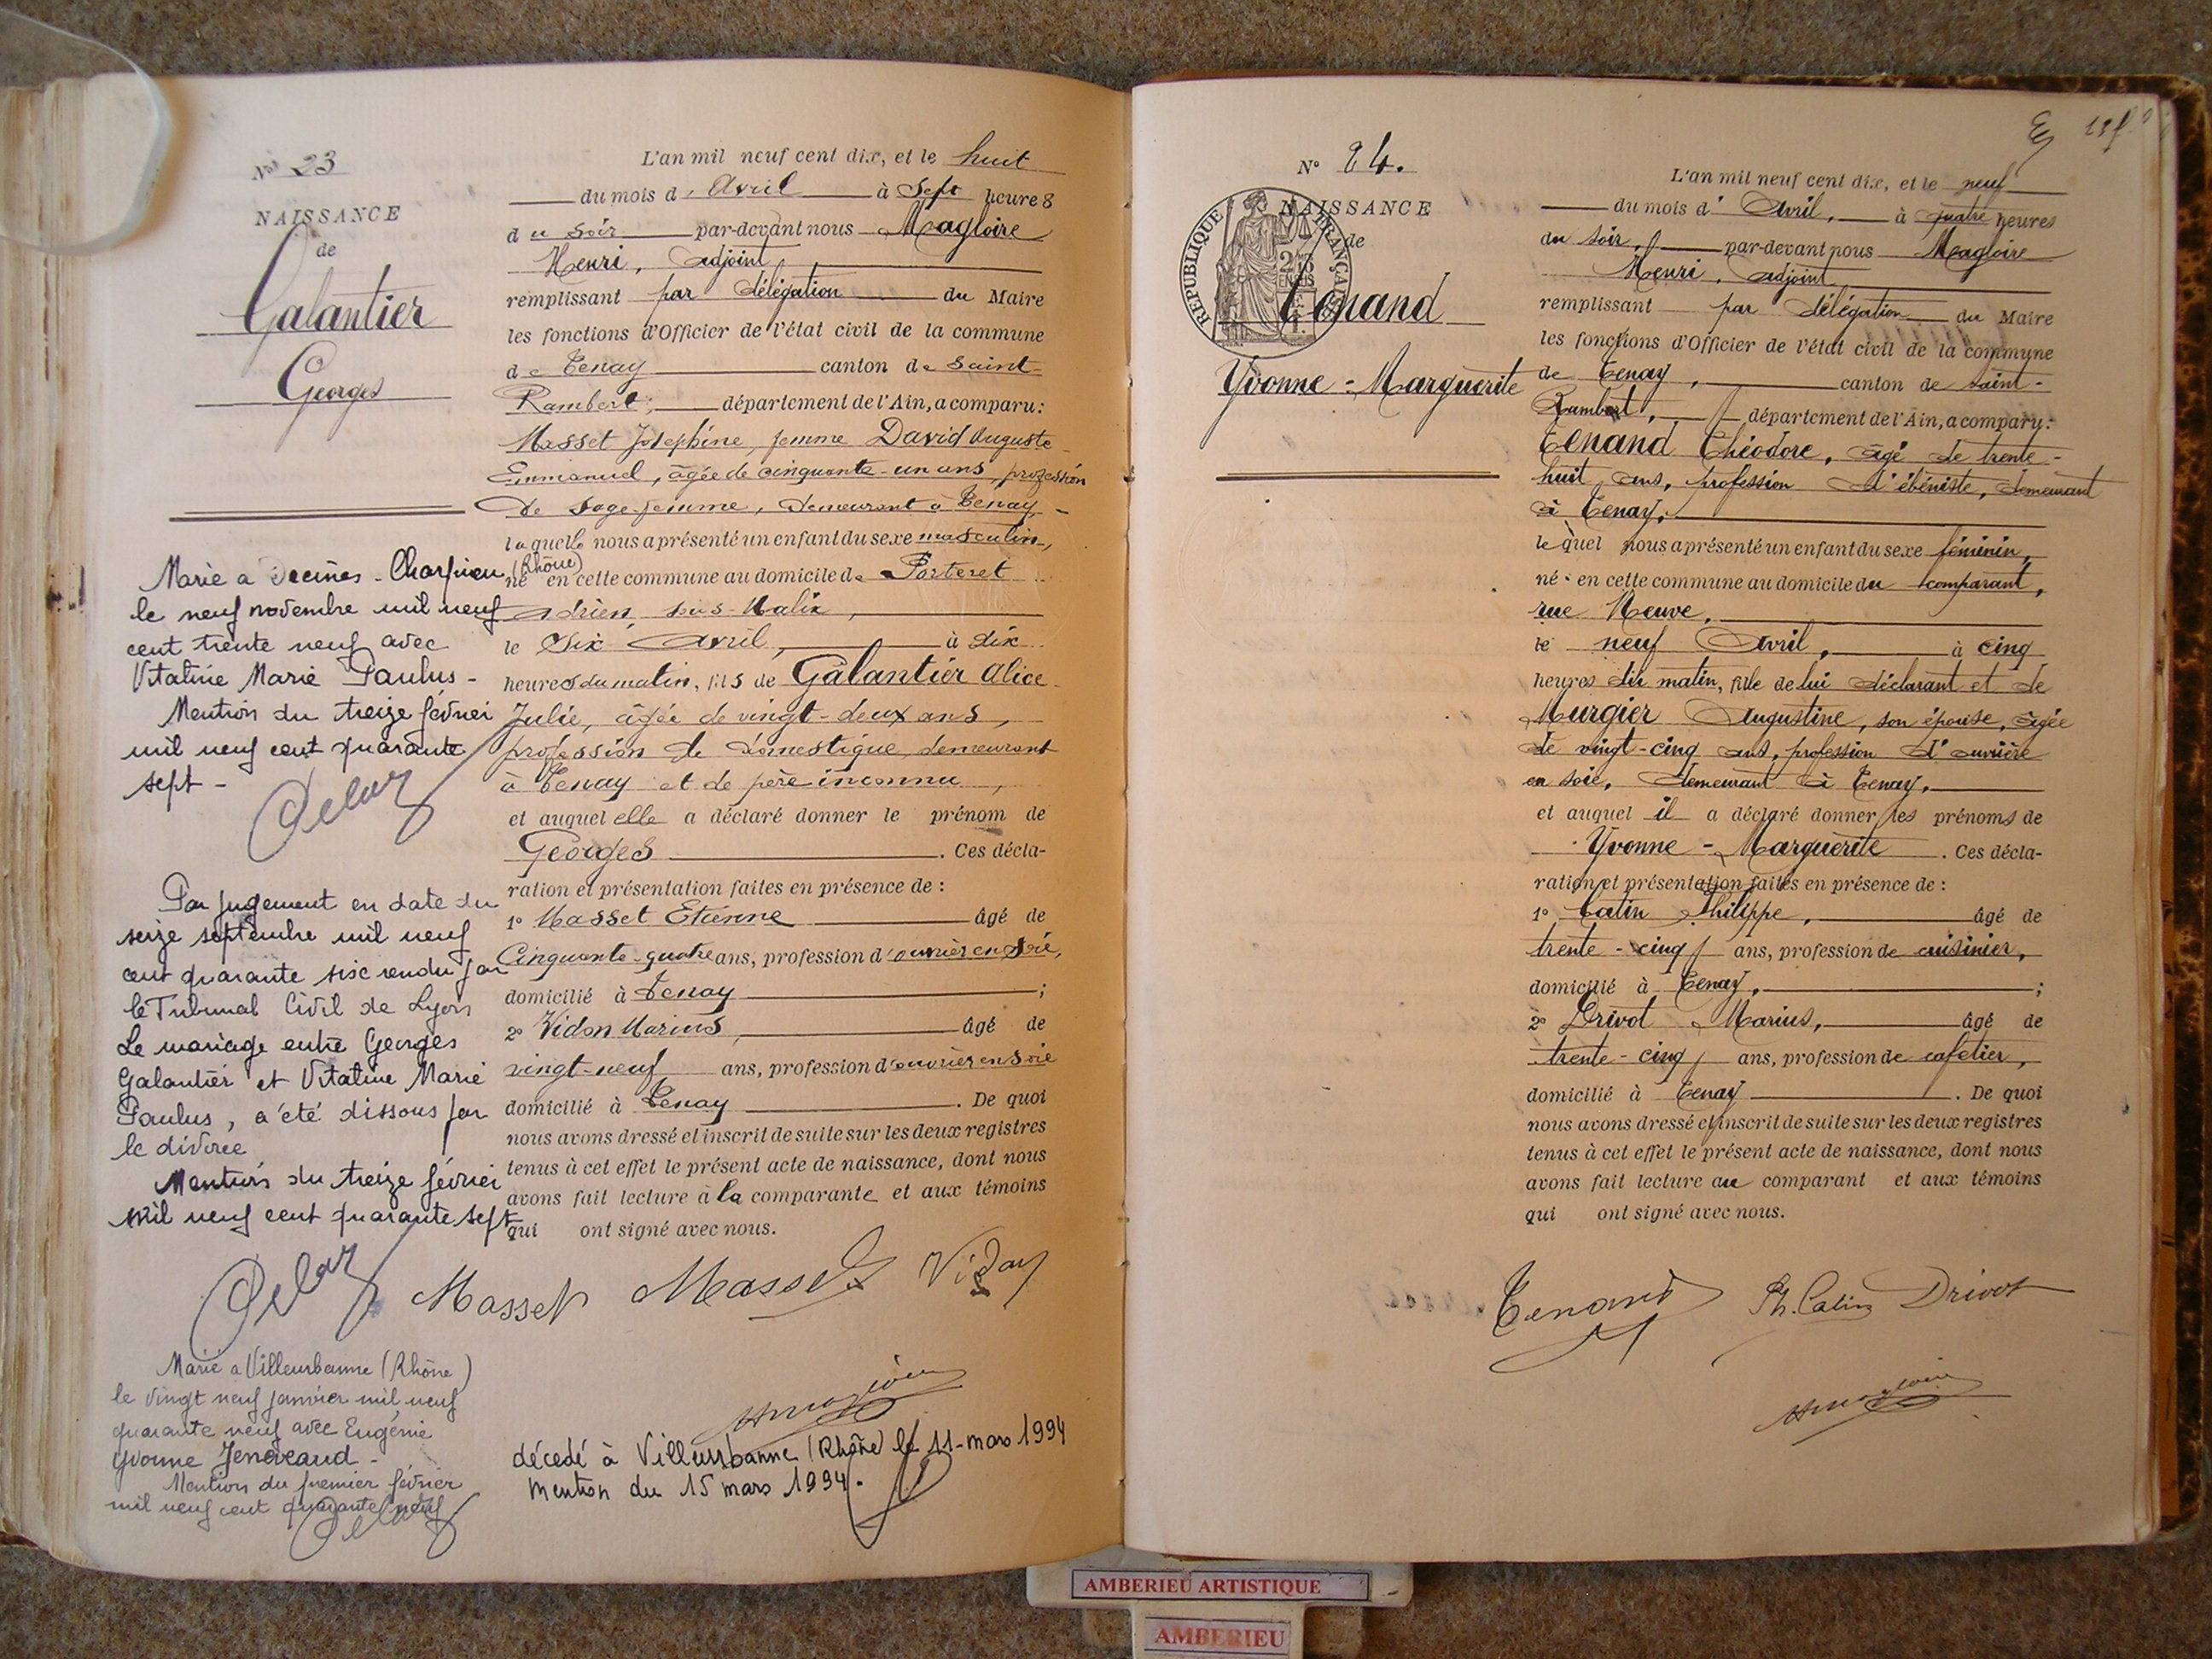 N° 23
NAISSANCE
de
Galantier
Georges
L'an mil neuf cent dix, et le huit
du mois d'Avril à Sept heures
du soir par-devant nous Magloire
Henri, adjoint
remplissant par délégation du Maire
les fonctions d'Officier de l'état civil de la commune
de Tenay canton de Saint-
Rambert, département de l'Ain, a comparu:
Masset Joséphine, femme David Auguste
Emmanuel, âgée de cinquante-un ans, profession
de sage-femme, demeurant à Tenay,
laquelle nous a présenté un enfant du sexe masculin,
né en cette commune au domicile de Porteret
Adrien, sous-Malix,
le Six Avril, à dix
heures du matin, fils de Galantier Alice
Julie, âgée de vingt-deux ans,
profession de domestique, demeurant
à Tenay et de père inconnu,
et auquel elle a déclaré donner le prénom de
Georges. Ces décla-
ration et présentation faites en présence de :
1° Masset Etienne âgé de
Cinquante-quatre ans, profession d'ouvrier en soie,
domicilié à Tenay ;
2° Vidon Marius, âgé de
vingt-neuf ans, profession d'ouvrier en soie
domicilié à Tenay. De quoi
nous avons dressé et inscrit de suite sur les deux registres
tenus à cet effet le présent acte de naissance, dont nous
avons fait lecture à la comparante et aux témoins
qui ont signé avec nous.
Masset Masset Vidon
décédé à Villeurbanne (Rhône) le 11-mars 1994
mention du 15 mars 1994.
Marié à Decines-Charpieu (Rhône)
le neuf novembre mil neuf
cent trente neuf avec
Vitaline Marie Paulus -
Mention du treize février
mil neuf cent quarante
sept -
Par jugement en date du
seize septembre mil neuf
cent quarante six rendu par
le Tribunal Civil de Lyon
Le mariage entre Georges
Galantier et Vitaline Marie
Paulus, a été dissous par
le divorce
Mention du treize février
mil neuf cent quarante sept
Marié a Villeurbanne (Rhône)
le vingt neuf janvier mil neuf
quarante neuf avec Eugénie
Yvonne
Mention du premier février
mil neuf cent quarante neuf
N° 24.
NAISSANCE
de
RÉPUBLIQUE FRANÇAISE
Tenand
Yvonne-Marguerite
L'an mil neuf cent dix, et le neuf
du mois d'Avril, à quatre heures
du soir, par-devant nous Magloire
Henri, adjoint
remplissant par délégation du Maire
les fonctions d'Officier de l'état civil de la commune
de Tenay, canton de Saint-
Rambert, département de l'Ain, a comparu:
Tenand Théodore, âgé de trente-
huit ans, profession d'ébéniste, demeurant
à Tenay,
lequel nous a présenté un enfant du sexe féminin,
né en cette commune au domicile du comparant,
rue Neuve,
le neuf Avril, à cinq
heures du matin, fille de lui déclarant et de
Murgier Augustine, son épouse, âgée
de vingt-cinq ans, profession d'ouvrière
en soie, demeurant à Tenay,
et auquel il a déclaré donner les prénoms de
Yvonne-Marguerite. Ces décla-
ration et présentation faites en présence de :
1° Catin Philippe, âgé de
trente-cinq ans, profession de cuisinier,
domicilié à Tenay, ;
2° Drivot Marius, âgé de
trente-cinq ans, profession de cafetier,
domicilié à Tenay. De quoi
nous avons dressé et inscrit de suite sur les deux registres
tenus à cet effet le présent acte de naissance, dont nous
avons fait lecture au comparant et aux témoins
qui ont signé avec nous.
Tenand Ph. Catin Drivot
AMBERIEU ARTISTIQUE
AMBERIEU